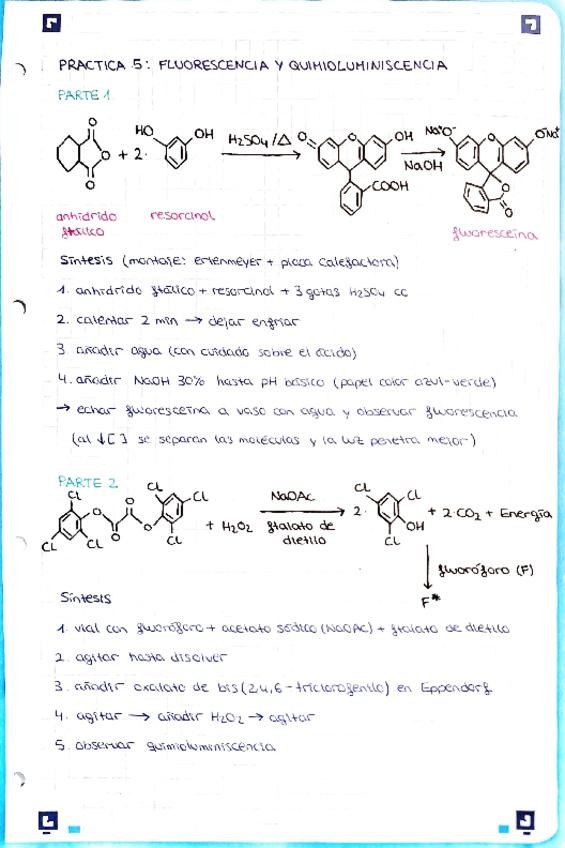 PRACTICA 5: FLUORESCENCIA Y QUIMIOLUMINISCENCIA
PARTE 1
O O O + 2· HO OH H2SO4/△ O O OH COOH NaOH Na+O- O ONa+ O O
anhídrido ftálico resorcinol fluoresceína
Síntesis (montaje: erlenmeyer + placa calefactora)
1. anhídrido ftálico + resorcinol + 3 gotas H2SO4 cc
2. calentar 2 min → dejar enfriar
3. añadir agua (con cuidado sobre el ácido)
4. añadir NaOH 30% hasta pH básico (papel color azul-verde)
→ echar fluoresceína a vaso con agua y observar fluorescencia
(al ↓[ ] se separan las moléculas y la luz penetra mejor)
PARTE 2
Cl Cl Cl O O O O Cl Cl Cl + H2O2 NaOAc ftalato de dietilo 2· Cl Cl OH Cl + 2·CO2 + Energía
fluoróforo (F)
F*
Síntesis
1. vial con fluoróforo + acetato sódico (NaOAc) + ftalato de dietilo
2. agitar hasta disolver
3. añadir oxalato de bis(2,4,6-triclorofenilo) en Eppendorf
4. agitar → añadir H2O2 → agitar
5. observar quimioluminiscencia